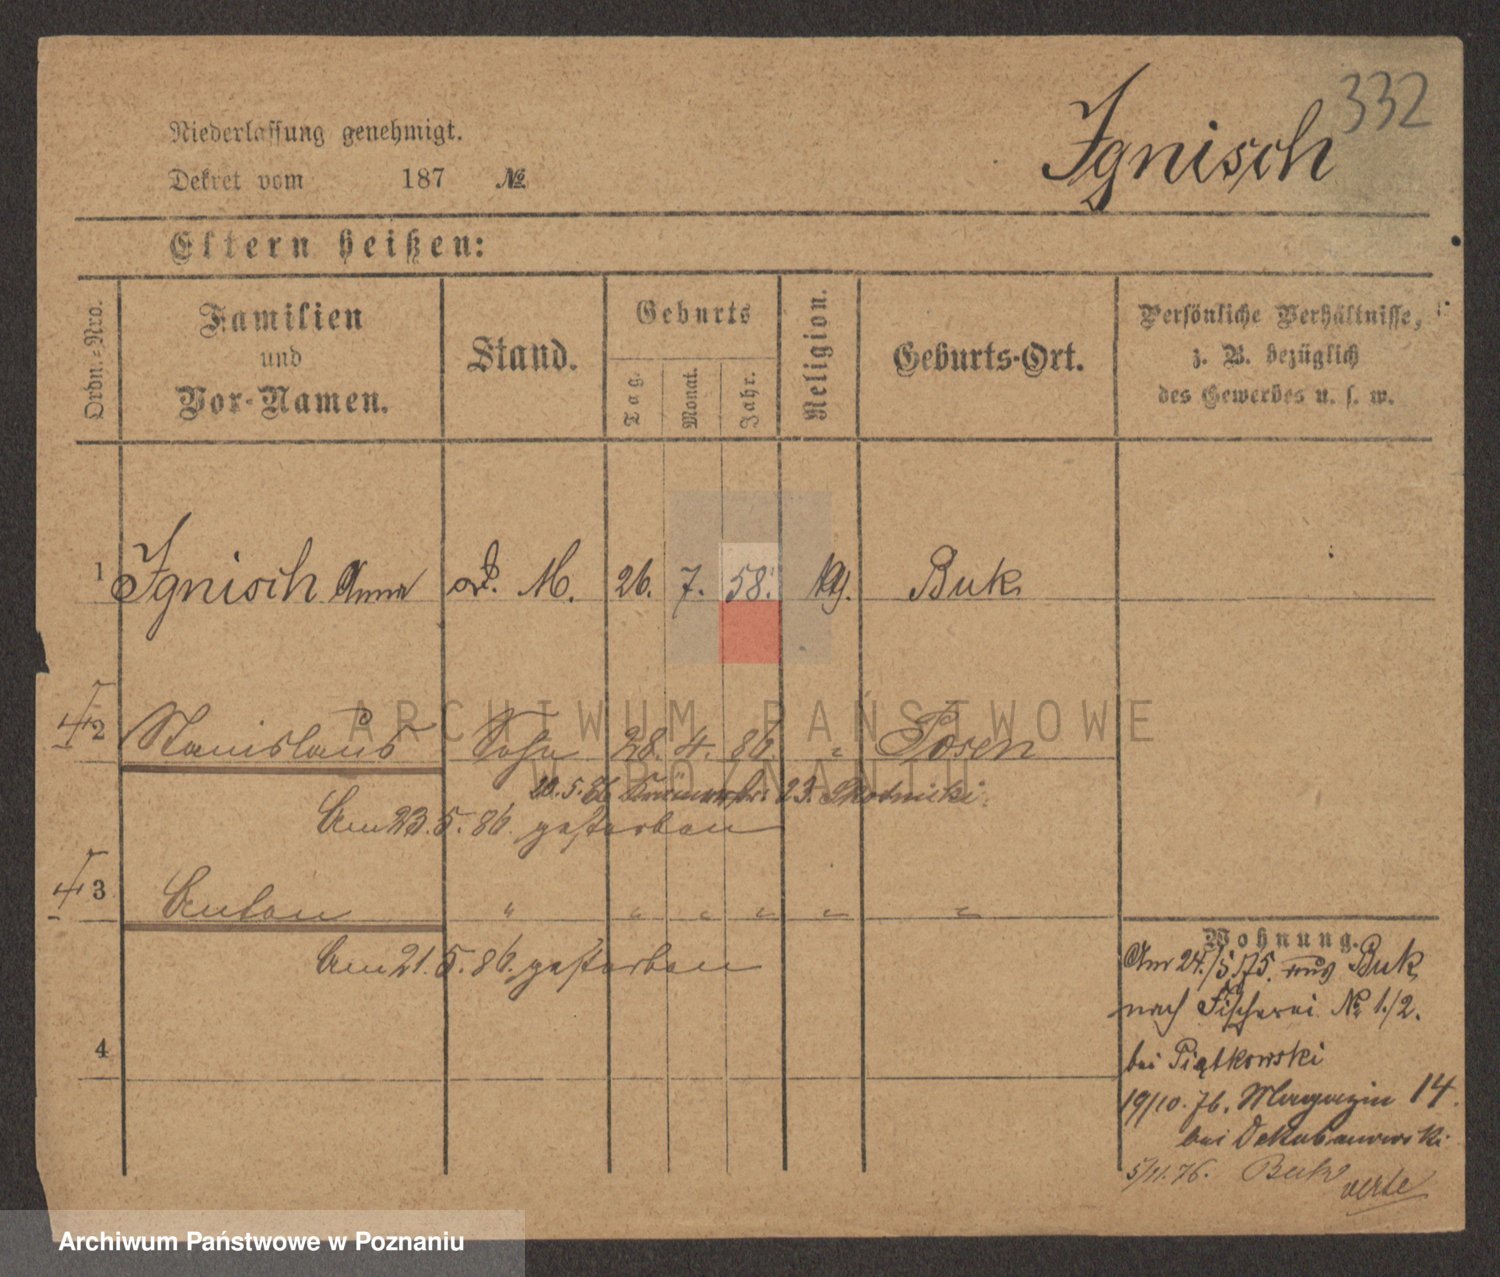 332
Ignisch
Niederlassung genehmigt.
Dekret vom 187 №
Eltern heißen:
Ordn.-Nro.
Familien und Vor-Namen.
Stand.
Geburts
Tag.
Monat.
Jahr.
Religion.
Geburts-Ort.
Persönliche Verhältnisse, z. B. bezüglich des Gewerbes u. s. w.
1 Ignisch Anna M. 26. 7. 58. Buk
2 Stanislaus Sohn 28. 4. 86. " Posen
20. 5. 86 23.
Am 23. 5. 86. gestorben
3 Anton " " " " " "
Am 21. 5. 86. gestorben
4
Wohnung.
Am 24./5.75. aus Buk
nach Fischerei № 1./2.
bei Piątkowski
19/10. 76. Magazin 14.
bei
5/11. 76. Buk verte
ARCHIWUM PAŃSTWOWE
W POZNANIU
Archiwum Państwowe w Poznaniu